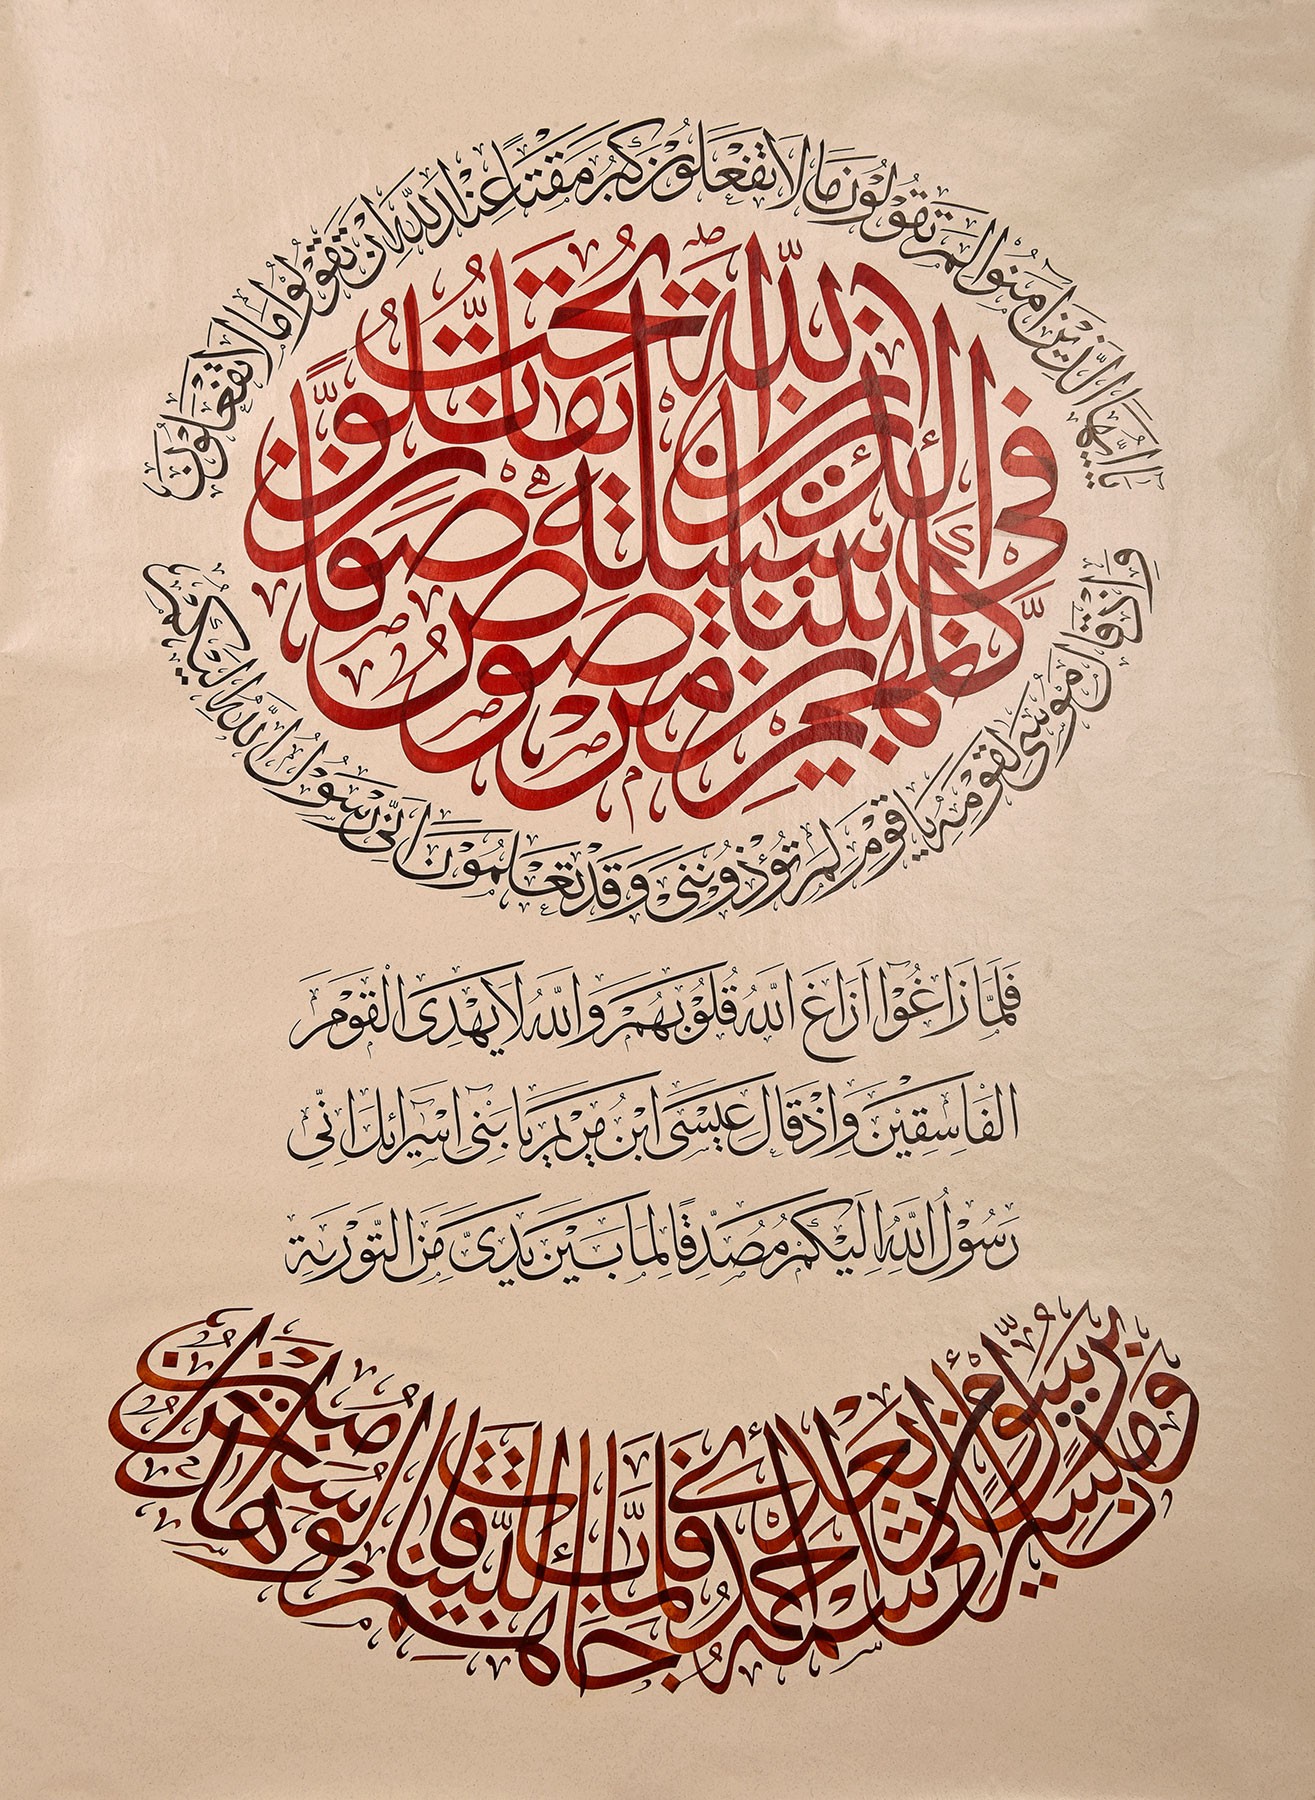 يا ايها الذين امنوا لم تقولون ما لا تفعلون كبر مقتا عند الله ان تقولوا ما لا تفعلون
ان الله يحب الذين يقاتلون في سبيله صفا كانهم بنيان مرصوص
واذ قال موسى لقومه يا قوم لم تؤذونني وقد تعلمون اني رسول الله اليكم
فَلَمَّا زَاغُوٓا اَزَاغَ اللّٰهُ قُلُوبَهُمْ وَاللّٰهُ لَا يَهْدِى الْقَوْمَ
الْفَاسِقِينَ وَاِذْ قَالَ عِيسَى ابْنُ مَرْيَمَ يَا بَنِىٓ اِسْرَٓائِلَ اِنِّى
رَسُولُ اللّٰهِ اِلَيْكُمْ مُصَدِّقًا لِمَا بَيْنَ يَدَىَّ مِنَ التَّوْرٰيةِ
ومبشرا برسول ياتي من بعدي اسمه احمد فلما جاءهم بالبينات قالوا هذا سحر مبين